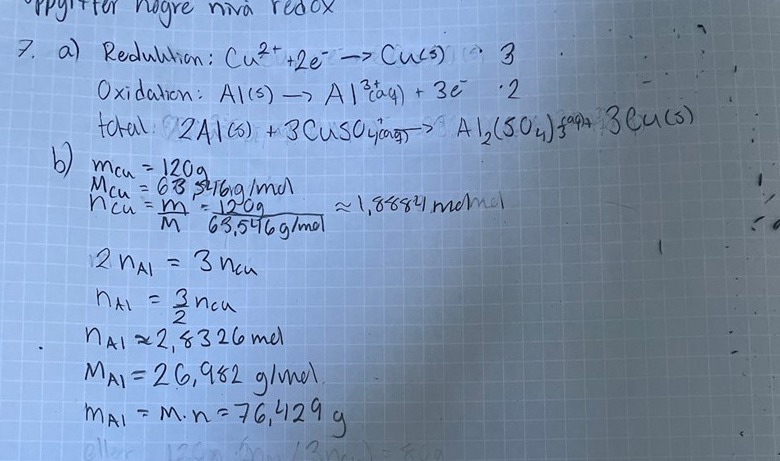 högre nivå redox
7. a) Reduktion: Cu²⁺ + 2e⁻ → Cu(s) · 3
Oxidation: Al(s) → Al³⁺(aq) + 3e⁻ · 2
total: 2Al(s) + 3CuSO₄(aq) → Al₂(SO₄)₃(aq) + 3Cu(s)
b) mCu = 120g
MCu = 63,546 g/mol
nCu = m/M = 120g/63,546 g/mol ≈ 1,8884 mol
2 nAl = 3 nCu
nAl = 3/2 nCu
nAl ≈ 2,8326 mol
MAl = 26,982 g/mol
mAl = M·n = 76,429 g
eller